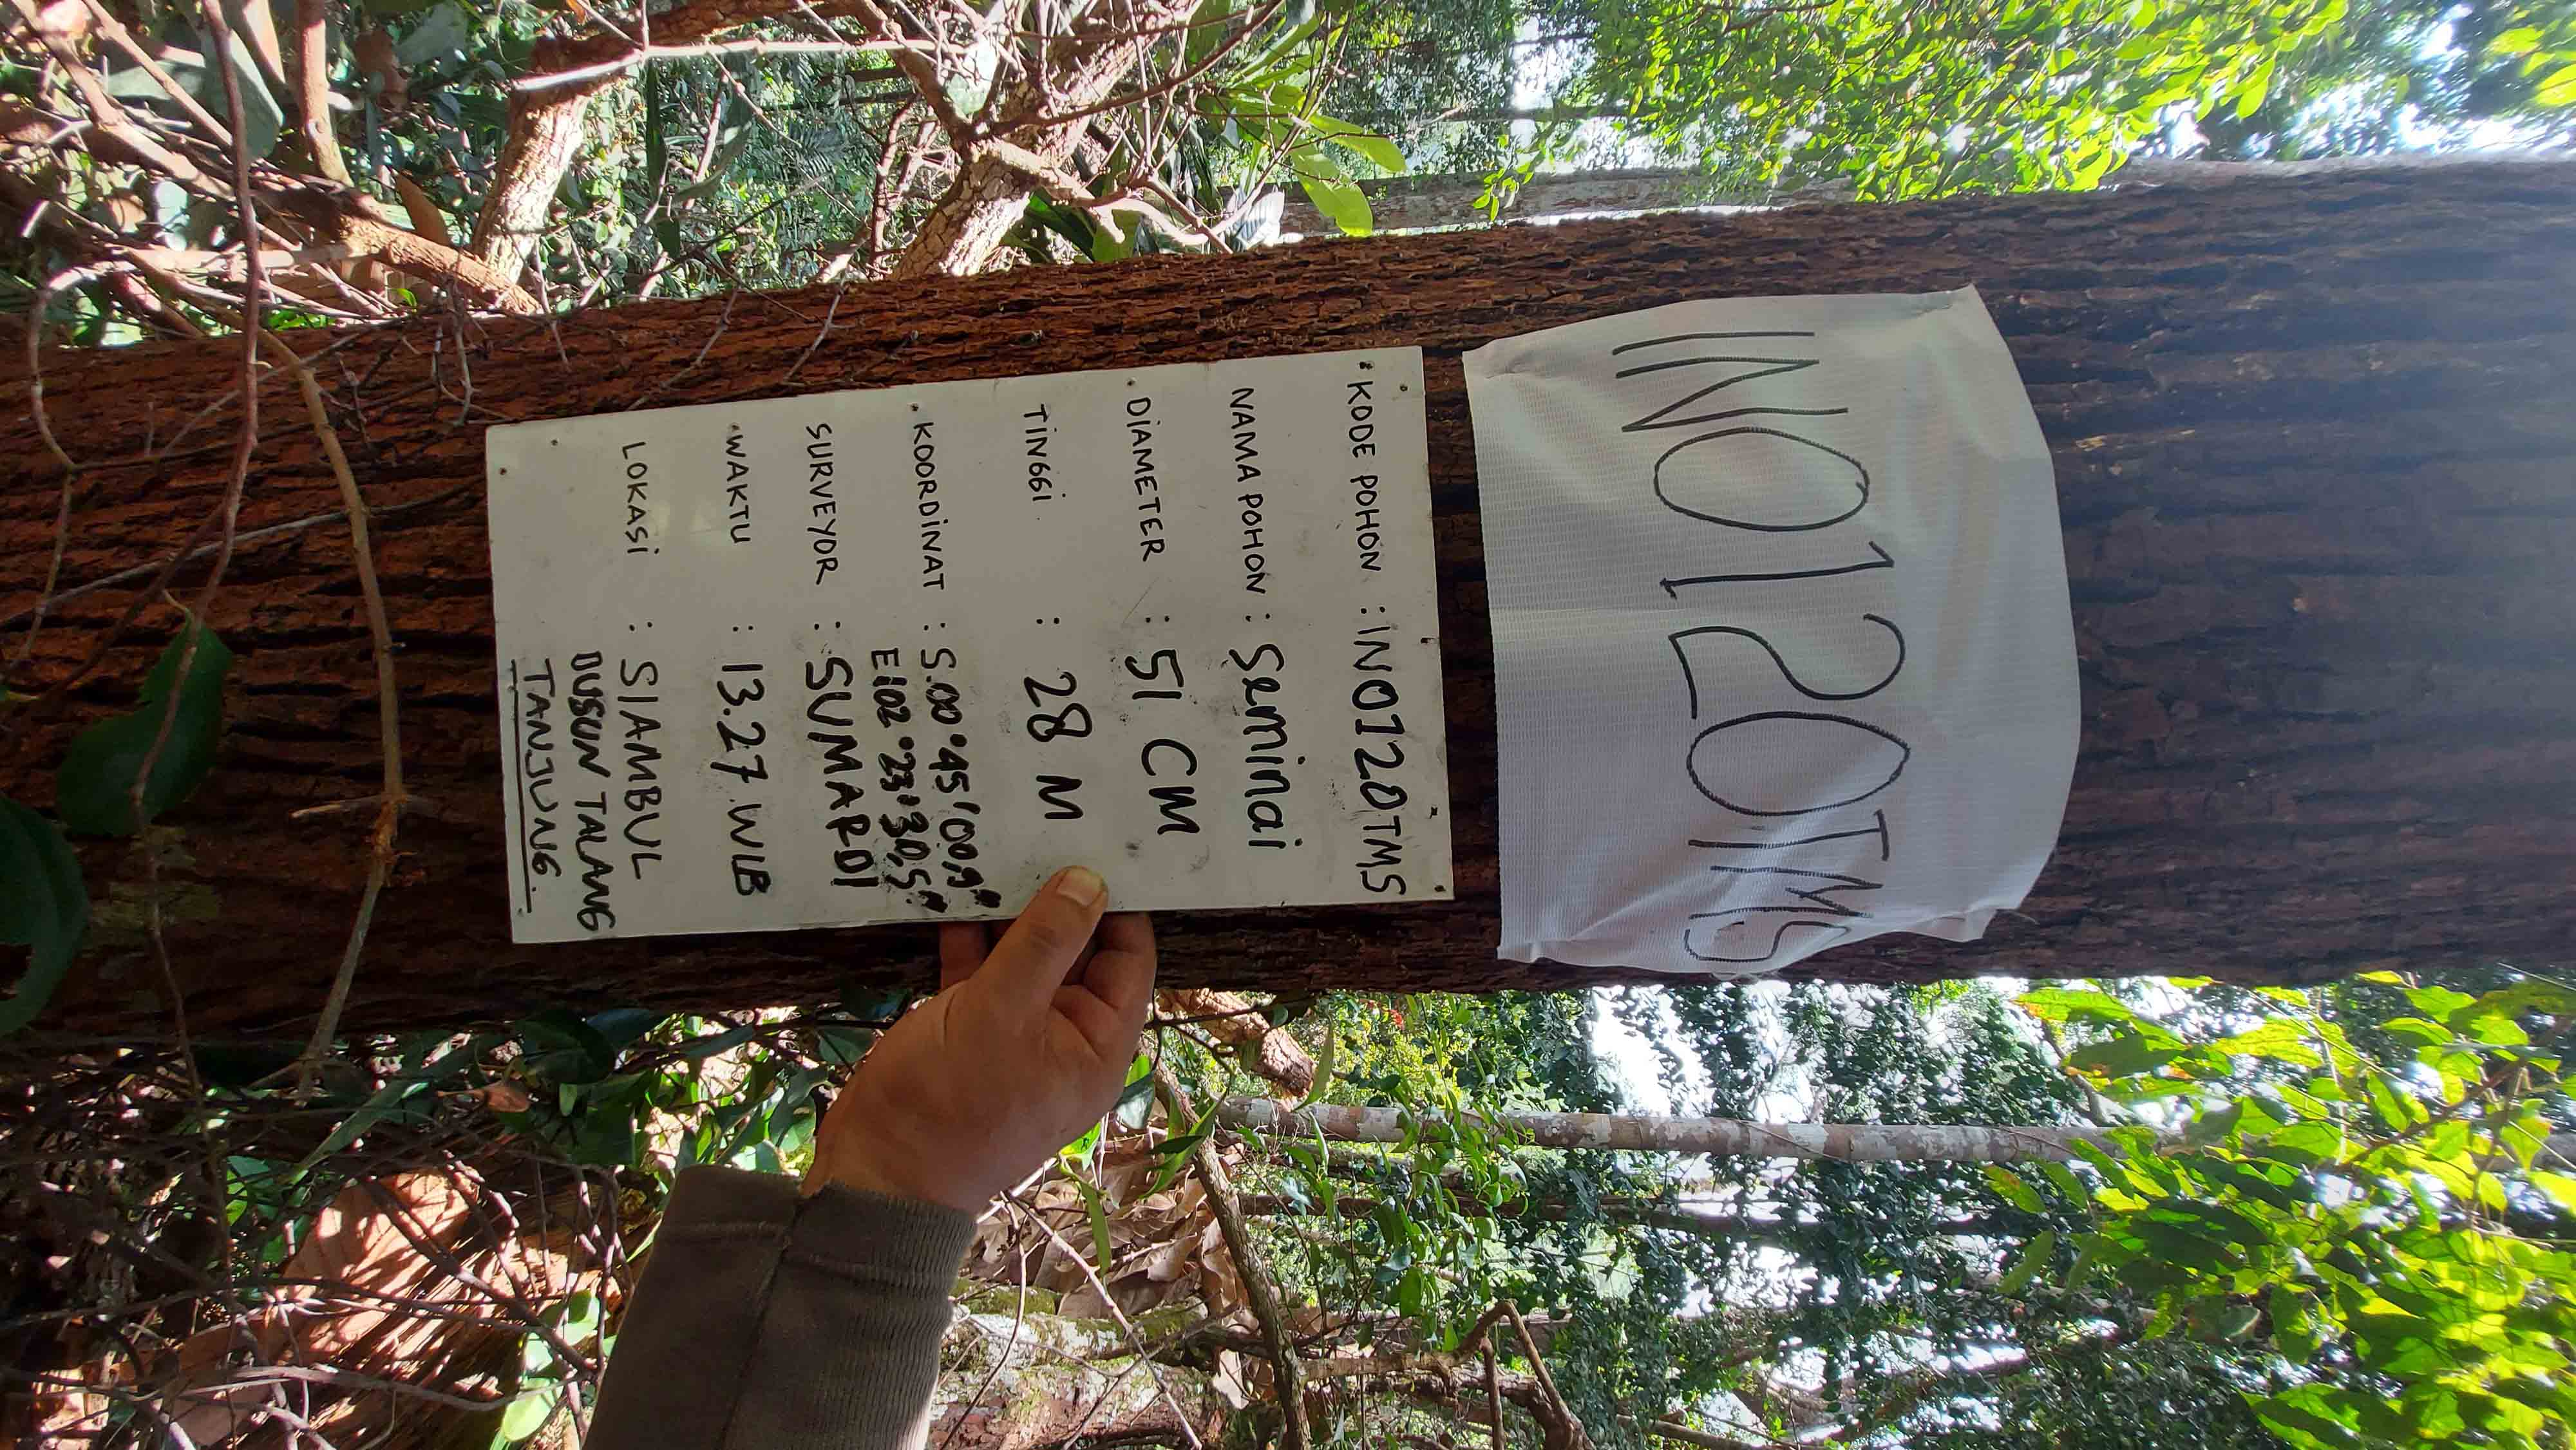 INO120TMS
KODE POHON : INO120TMS
NAMA POHON : Seminai
DIAMETER : 51 CM
TINGGI : 28 M
KOORDINAT : S.00°45'00,9"
E102°23'30,5"
SURVEYOR : SUMARDI
WAKTU : 13.27 WIB
LOKASI : SIAMBUL
DUSUN TALANG
TANJUNG.